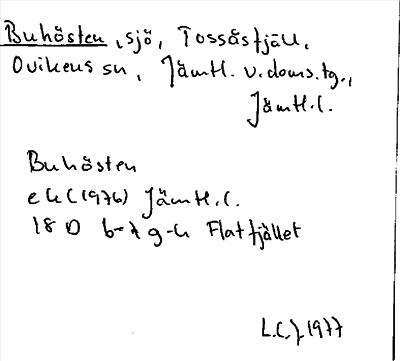 Buhösten, sjö, Tossåsfjäll,
Ovikens sn, Jämtl. v. doms. tg.,
Jämtl. l.
Buhösten
ek (1976) Jämtl. l.
18 D g-h Flatfjället
L.C.J. 1977